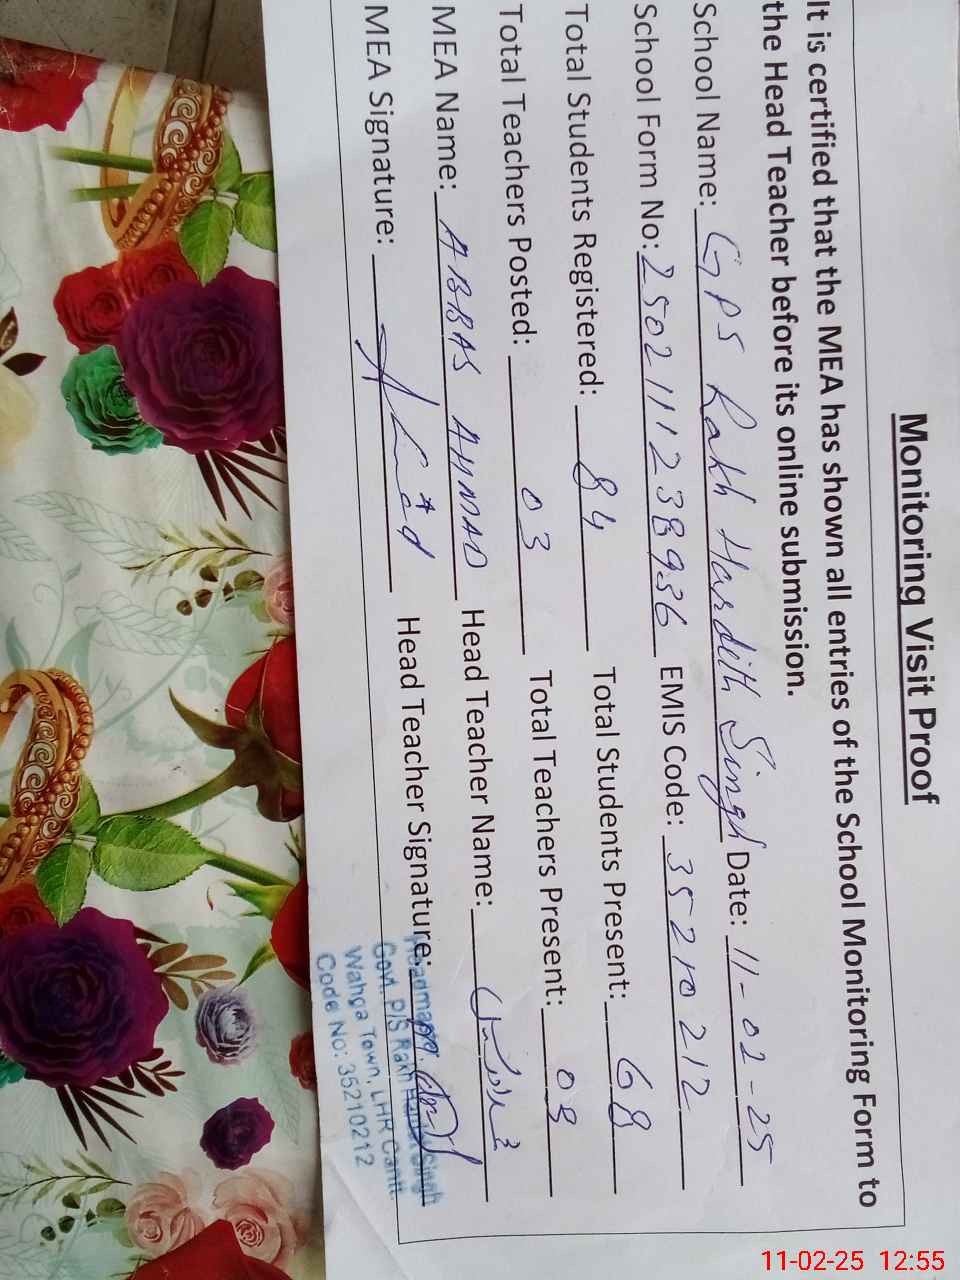 Monitoring Visit Proof
It is certified that the MEA has shown all entries of the School Monitoring Form to
the Head Teacher before its online submission.
School Name: GPS Rakh Hardith Singh Date: 11-02-25
School Form No: 2502111238936 EMIS Code: 35210212
Total Students Registered: 84 Total Students Present: 68
Total Teachers Posted: 03 Total Teachers Present: 03
MEA Name: ABBAS AHMAD Head Teacher Name:
MEA Signature: Head Teacher Signature:
Govt. P/S Rakh Singh
Wahga Town, LHR Cantt.
Code No: 35210212
11-02-25 12:55